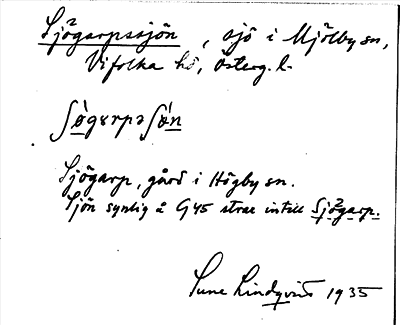 Sjögarpssjön, sjö i Mjölby sn,
Vifolka hd, Österg. l.
ʃøgɐrpəʃøn
Sjögarp, gård i Högby sn.
Sjön synlig å G 45 strax intill Sjögarp.
Sune Lindqvist 1935